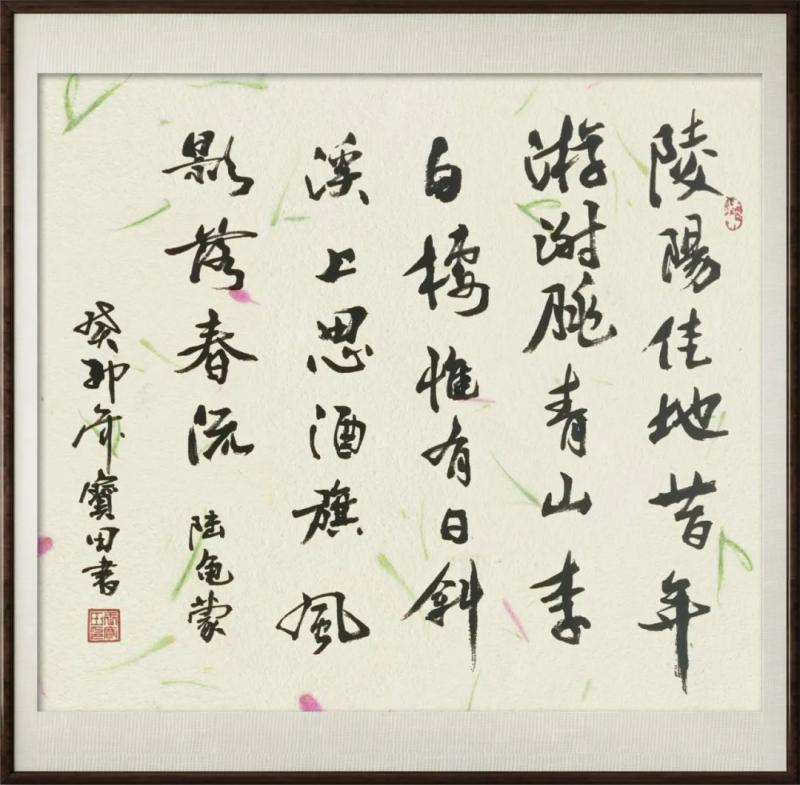 陵陽佳地昔年
游谢朓青山李
白樓惟有日斜
溪上思酒旗風
影落春流 陆龟蒙
癸卯年寶田書